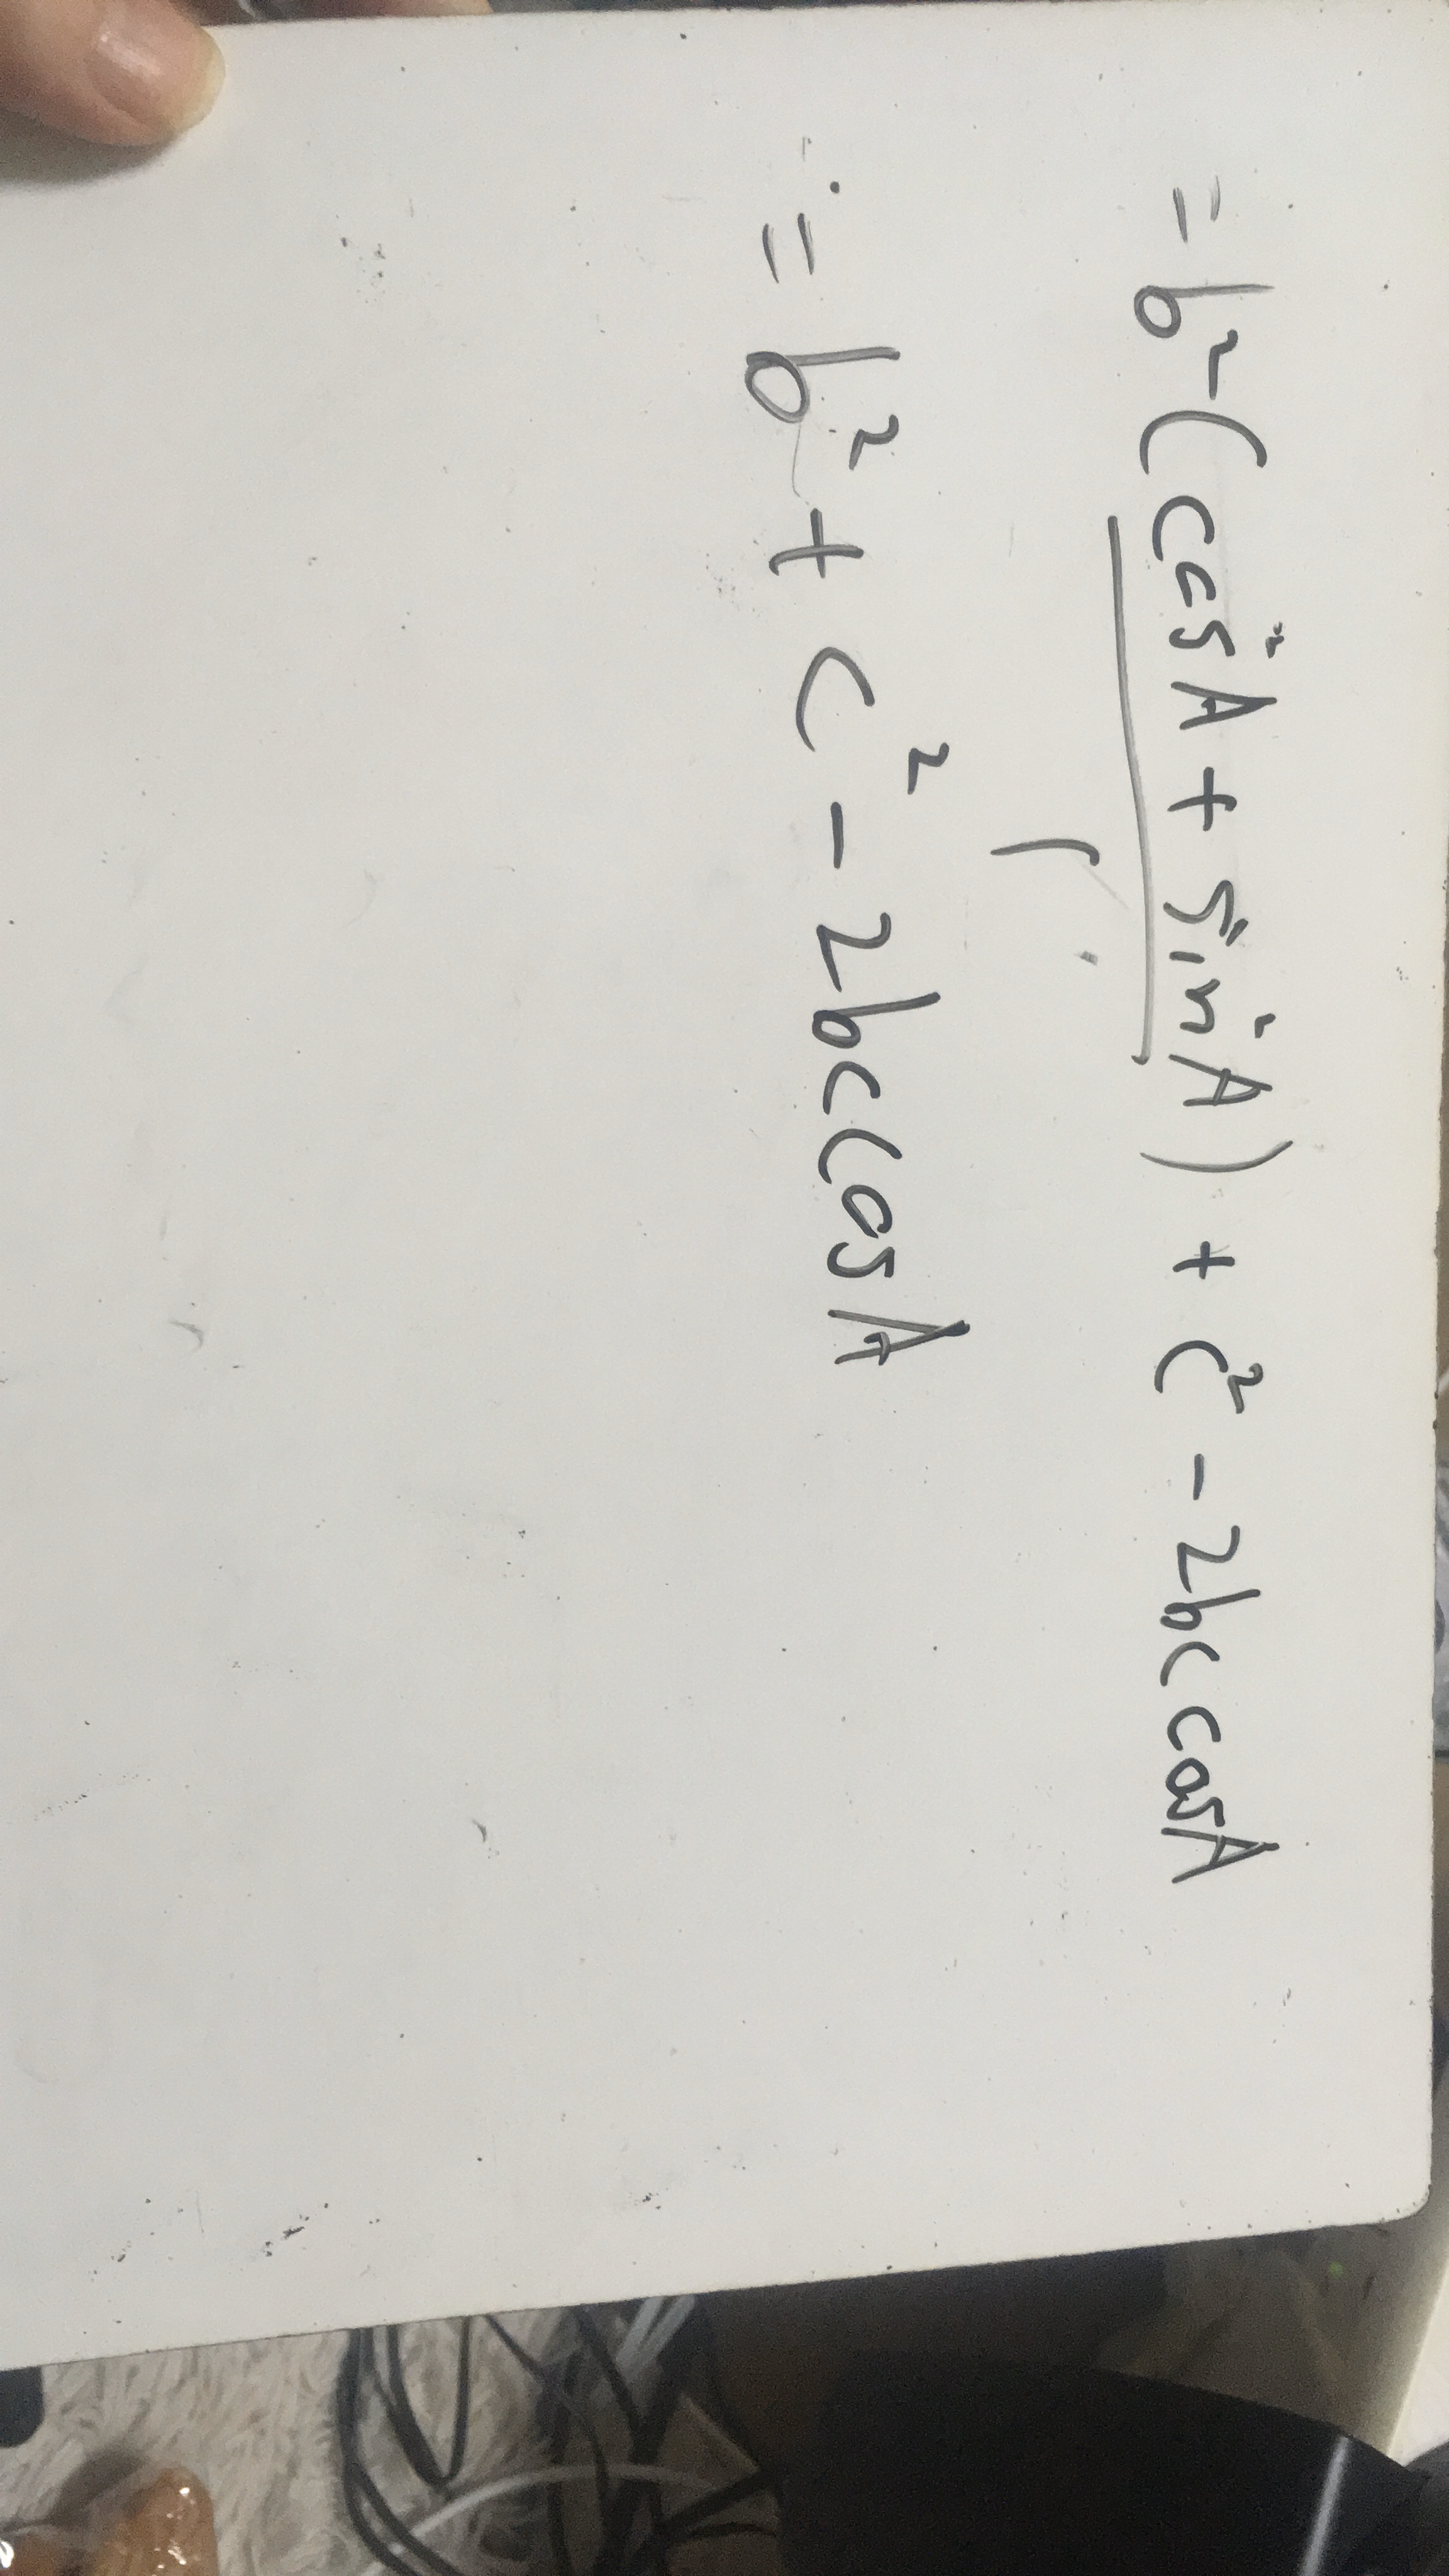 = b²-(cos²A + sin²A) + c² - 2bccosA
1
= b² + c² - 2bccosA